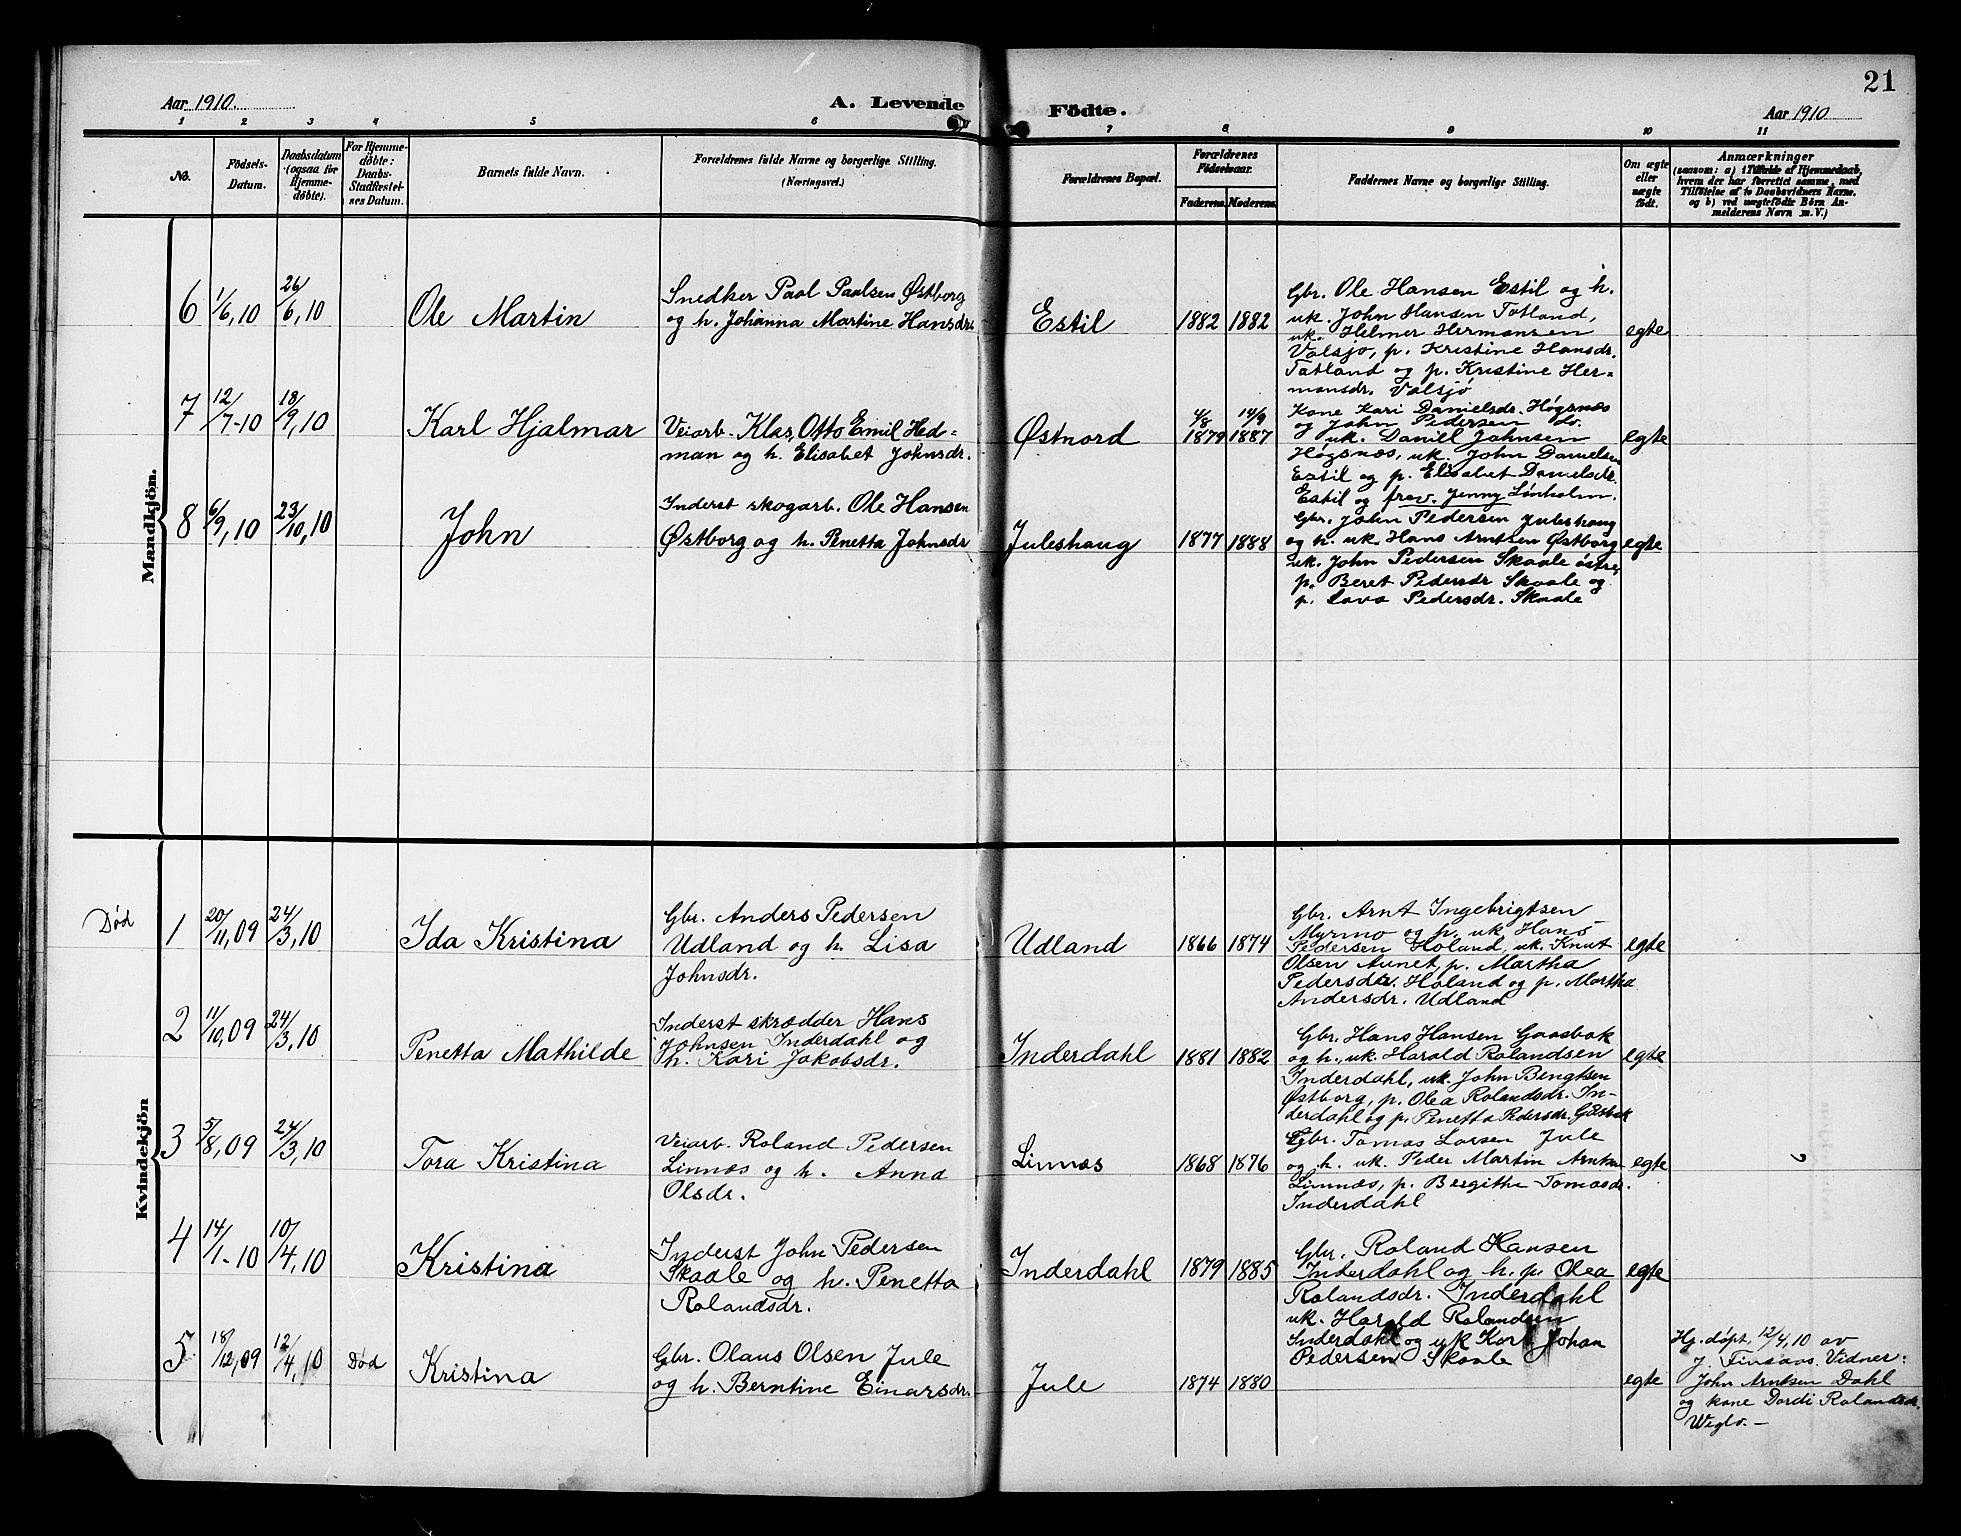 21
Aar 1910.
A. Levende Födte.
Aar 1910
1 2 3 4 5 6 7 8 9 10 11
No.
Födsels-
Datum.
Daabsdatum
(ogsaa for
Hjemme-
döbte).
For Hjemme-
döbte:
Daabs-
Stadfæstel-
ses Datum.
Barnets fulde Navn.
Forældrenes fulde Navne og borgerlige Stilling.
(Næringsvei.)
Forældrenes Bopæl.
Forældrenes
Födselsaar.
Faderens. Moderens.
Faddernes Navne og borgerlige Stilling.
Om ægte
eller
uægte
födt.
Anmærkninger
(saasom: a) i Tilfælde af Hjemmedaab,
hvem der har forrettet samme, med
Tilföielse af to Daabsvidners Navne,
og b) ved uægtefödte Börn An-
melderens Navn m. V.)
Mandkjön.
6 1/6, 10 26/6, 10
Ole Martin
Snedker Paul Paulsen Østborg
og h. Johanna Martine Hansdr.
Estil
1882 1882
Gbr. Ole Hansen Estil og h.
uk. John Hansen Totland,
uk. Helmer Hermansen
Valsjø, p. Kristine Hansdr.
Totland og p. Kristine Her-
mansdr. Valsjö
egte
7 12/7-10 18/9, 10
Karl Hjalmar
Veiarb. Klas Otto Emil Hed-
man og h. Elisabet Johnsdr.
Østnord
4/8 1879 14/9 1887
Kone Kari Danielsdr. Høgsnæs
og John Pedersen
uk. Daniel Johnsen
Høgsnæs, uk. John Danielsen
Estil og p. Elisabet Danielsdr.
Estil og frøv. Jenny Lønholm.
egte
8 6/9, 10 23/10, 10
John
Inderst skogarb. Ole Hansen
Østborg og h. Penetta Johnsdr
Juleshaug
1877 1888
Gbr. John Pedersen Juleshaug
og h. uk. Hans Arntsen Østborg
uk. John Pedersen Skaale østre,
p. Beret Pedersdr Skaale og
p. Lava Pedersdr. Skaale
egte
Kvindekjön
Død
1 20/11, 09 24/3, 10
Ida Kristina
Gbr. Anders Pedersen
Udland og h. Lisa
Johnsdr.
Udland
1866 1874
Gbr. Arnt Ingebrigtsen
Myrmo og h. uk Hans
Pedersen Holand, uk. Knut
Olsen Aunet, p. Martha
Pedersdr. Holand og p. Martha
Andersdr. Udland
egte
2 11/10, 09 24/3, 10
Penetta Mathilde
Inderst skrædder Hans
Johnsen Inderdahl og
h. Kari Jakobsdr.
Inderdahl
1881 1882
Gbr. Hans Hansen Gaasbak
og h., uk. Harald Rolandsen
Inderdahl, uk. John Bengtsen
Østborg, p. Olea Rolandsdr. In-
derdahl og p. Penetta Pedersdr. Gåsbak
egte
3 5/8, 09 24/3, 10
Tora Kristina
Veiarb. Roland Pedersen
Linnæs og h. Anna
Olsdr.
Linnæs
1868 1876
Gbr. Tomas Larsen Jule
og h. uk. Peder Martin Arntsen
Linnæs, p. Bergithe Tomasdr.
Inderdahl
egte
4 14/1-10 10/4, 10
Kristina
Inderst John Pedersen
Skaale og h. Penetta
Rolandsdr.
Inderdahl
1879 1885
Gbr. Roland Hansen
Inderdahl og h. p. Olea
Rolandsdr. Inderdahl
uk. Harald Rolandsen
Inderdahl og uk Karl Johan
Pedersen Skaale
egte
5 18/12, 09 12/4, 10 Død
Kristina
Gbr. Olaus Olsen Jule
og h. Berntine Einarsdr.
Jule
1874 1880
egte
Hj. døpt, 12/4, 10 av
J. Finsaas. Vidner:
John Arntsen Dahl
og kone Dordi Rolandsdr.